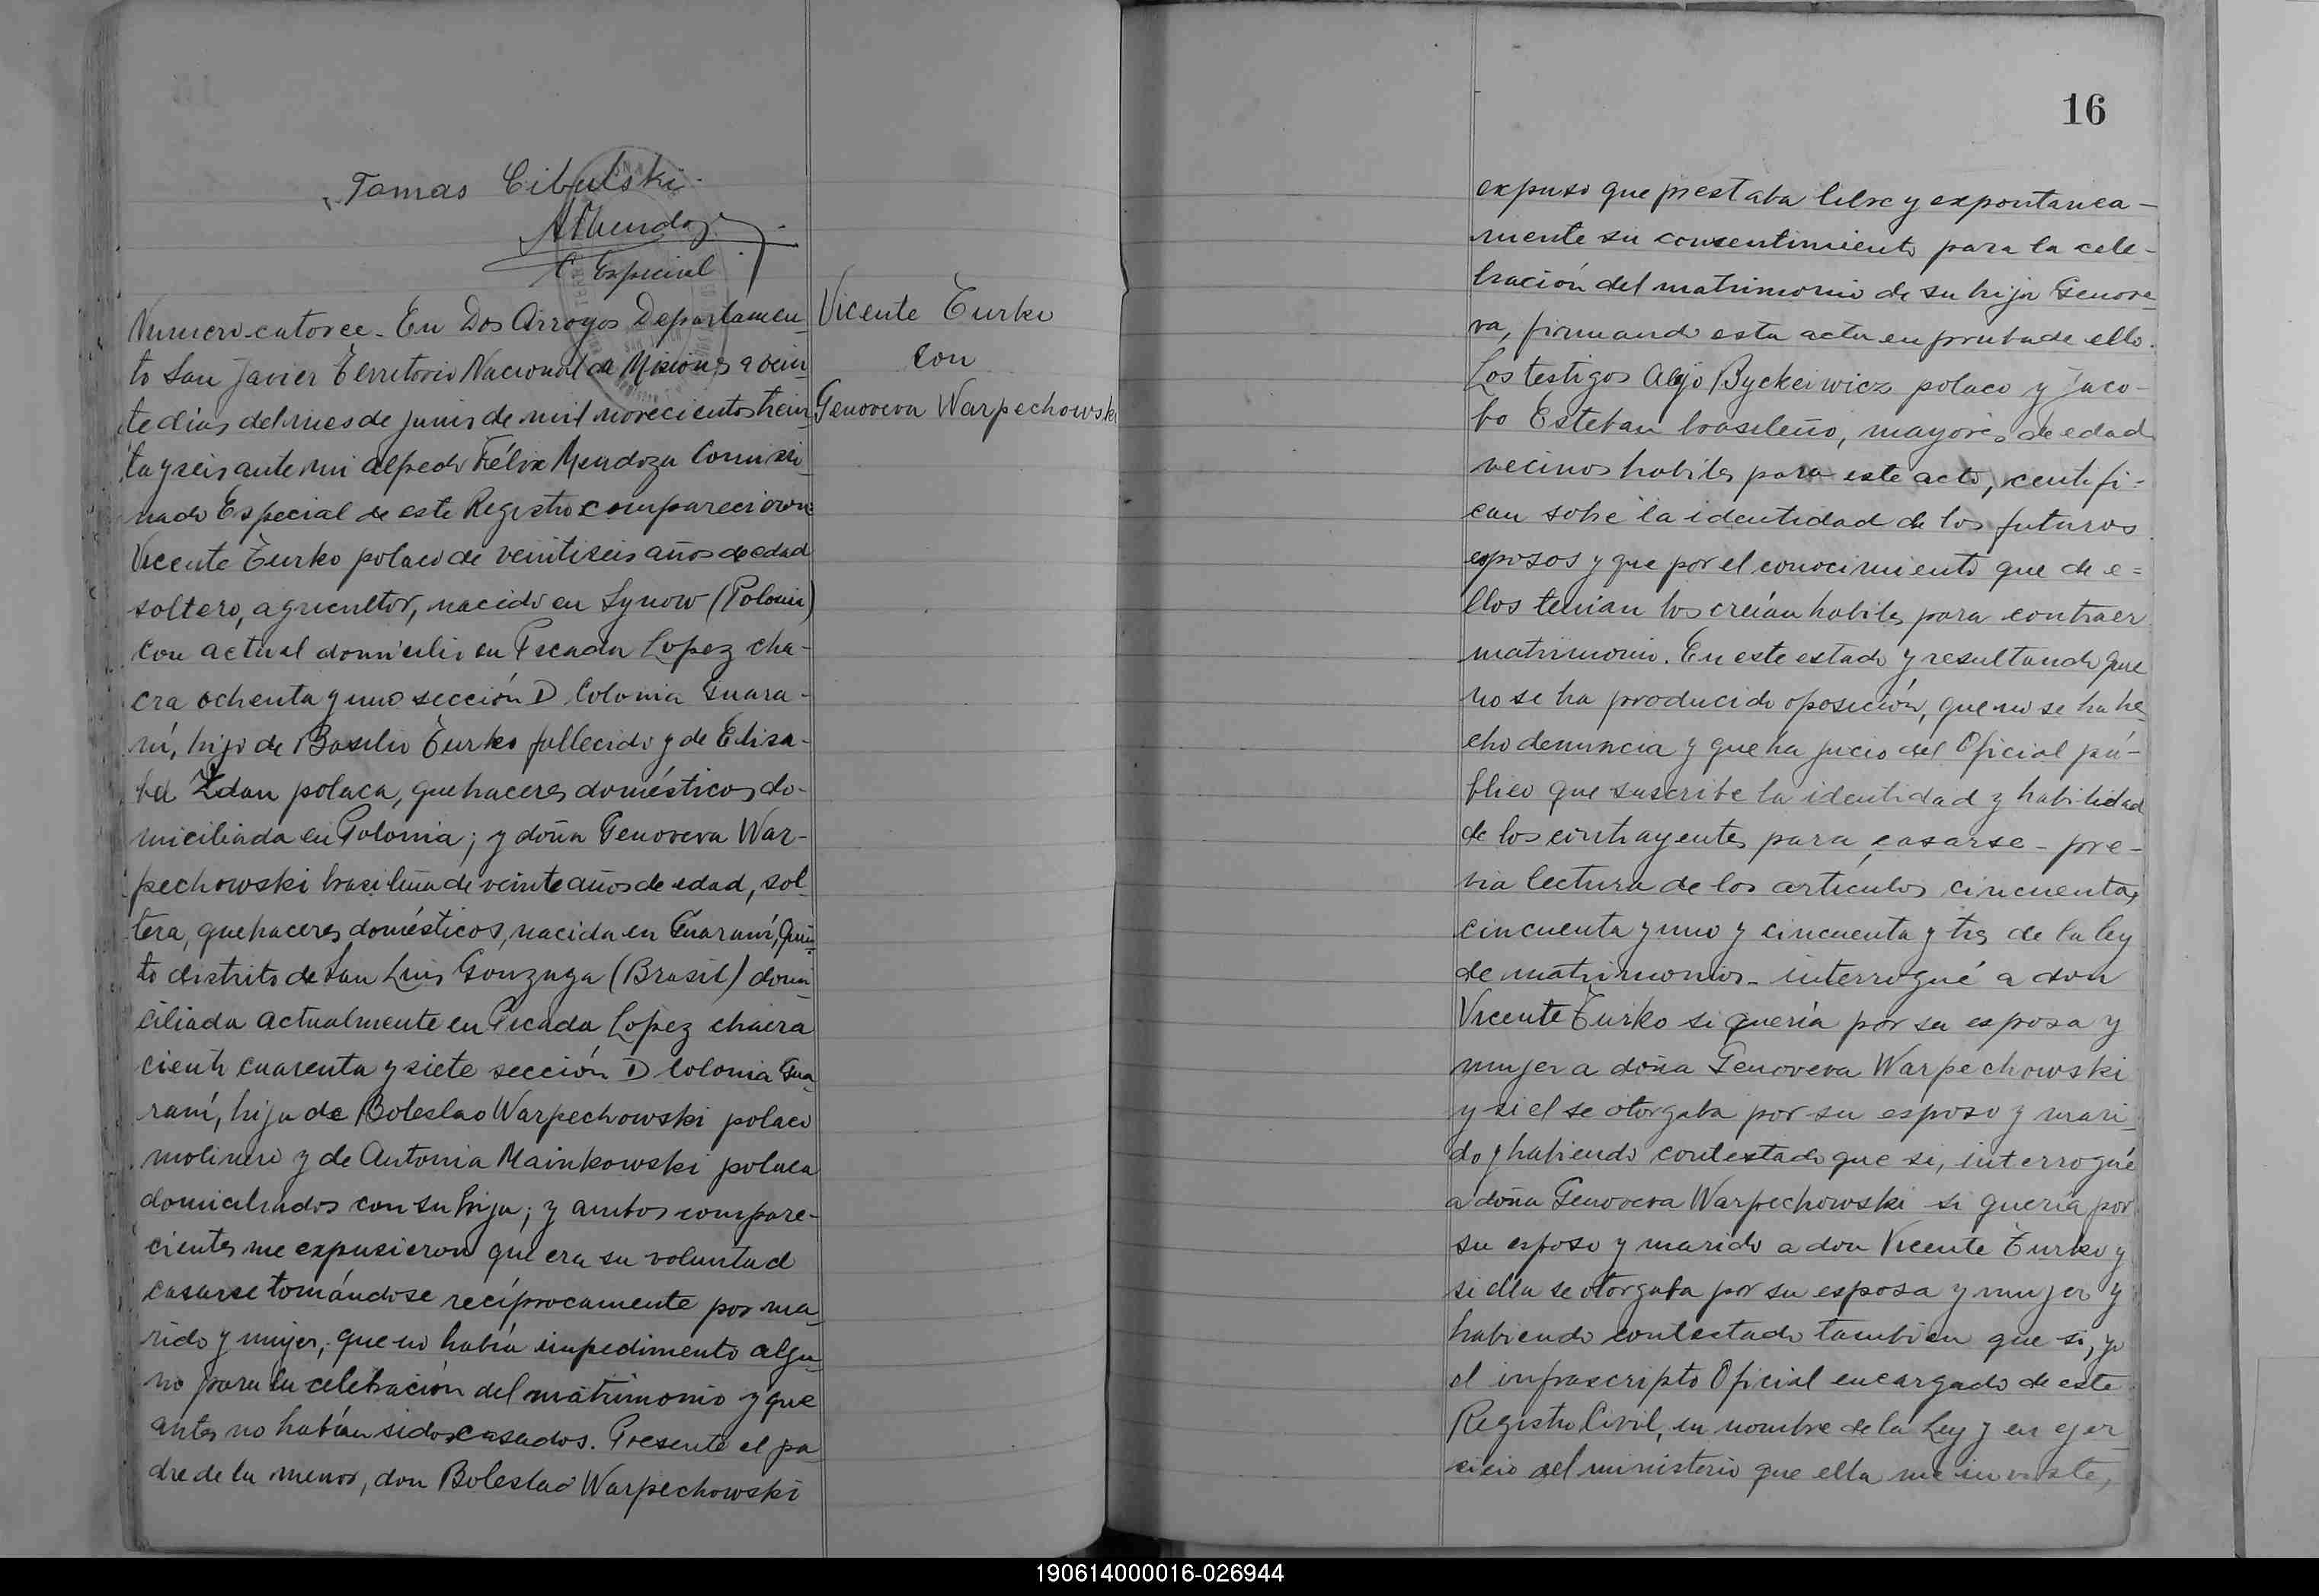 Tomas Cibulski
AFMendoza
C. Especial
Vicente Turko
con
Genoveva Warpechowski
Numero catorce - En Dos Arroyos Departamen
to San Javier Territorio Nacional de Misiones a vein
te días del mes de junio de mil novecientos trein
ta y seis ante mi Alfredo Félix Mendoza Comisio
nado Especial de este Registro comparecieron
Vicente Turko polaco de veintiseis años de edad
soltero, agricultor, nacido en Synow (Polonia)
con actual domicilio en Picada Lopez cha-
cra ochenta y uno sección D Colonia Guara-
ní, hijo de Basilio Turko fallecido y de Elisa-
bet Zdan polaca, quehaceres domésticos do-
miciliada en Polonia; y doña Genoveva War-
pechowski brasileña de veinte años de edad, sol
tera, quehaceres domésticos, nacida en Guaraní, Quin
to distrito de San Luis Gonzaga (Brasil) domi
ciliada actualmente en Picada Lopez chacra
ciento cuarenta y siete sección D Colonia Gua
raní, hija de Boleslao Warpechowski polaco
molinero y de Antonia Mainkowski polaca
domiciliados con su hija; y ambos compare-
cientes me expusieron que era su voluntad
casarse tomándose recíprocamente por ma
rido y mujer, que no había impedimento algu
no para la celebración del matrimonio y que
antes no habían sido casados. Presente el pa
dre de la menor, don Boleslao Warpechowski
16
expuso que prestaba libre y expontanea-
mente su consentimiento para la cele-
bración del matrimonio de su hija Genove
va, firmando esta acta en prueba de ello.
Los testigos Alejo Byckeiwicz polaco y Jaco-
bo Esteban brasileño, mayores de edad
vecinos habiles para este acto, certifi-
can sobre la identidad de los futuros
esposos y que por el conocimiento que de e-
llos tenian los creían habiles para contraer
matrimonio. En este estado y resultando que
no se ha producido oposición, que no se ha he
cho denuncia y que ha jucio del Oficial pú-
blico que suscribe la identidad y habilidad
de los contrayentes para casarse - pre-
via lectura de los artículos cincuenta,
cincuenta y uno y cincuenta y tres de la ley
de matrimonios - interrogué a don
Vicente Turko si quería por su esposa y
mujer a doña Genoveva Warpechowski
y si el se otorgaba por su esposo y mari
do y habiendo contestado que si, interrogué
a doña Genoveva Warpechowski si quería por
su esposo y marido a don Vicente Turko y
si ella se otorgaba por su esposa y mujer y
habiendo contestado tambien que si, yo
el infrascripto Oficial encargado de este
Registro Civil, en nombre de la Ley y en ejer
cicio del ministerio que ella me inviste,
190614000016-026944